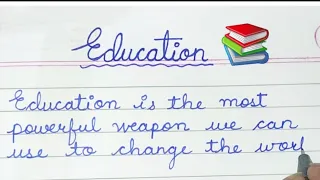 Education
Education is the most
powerful weapon we can
use to change the worl